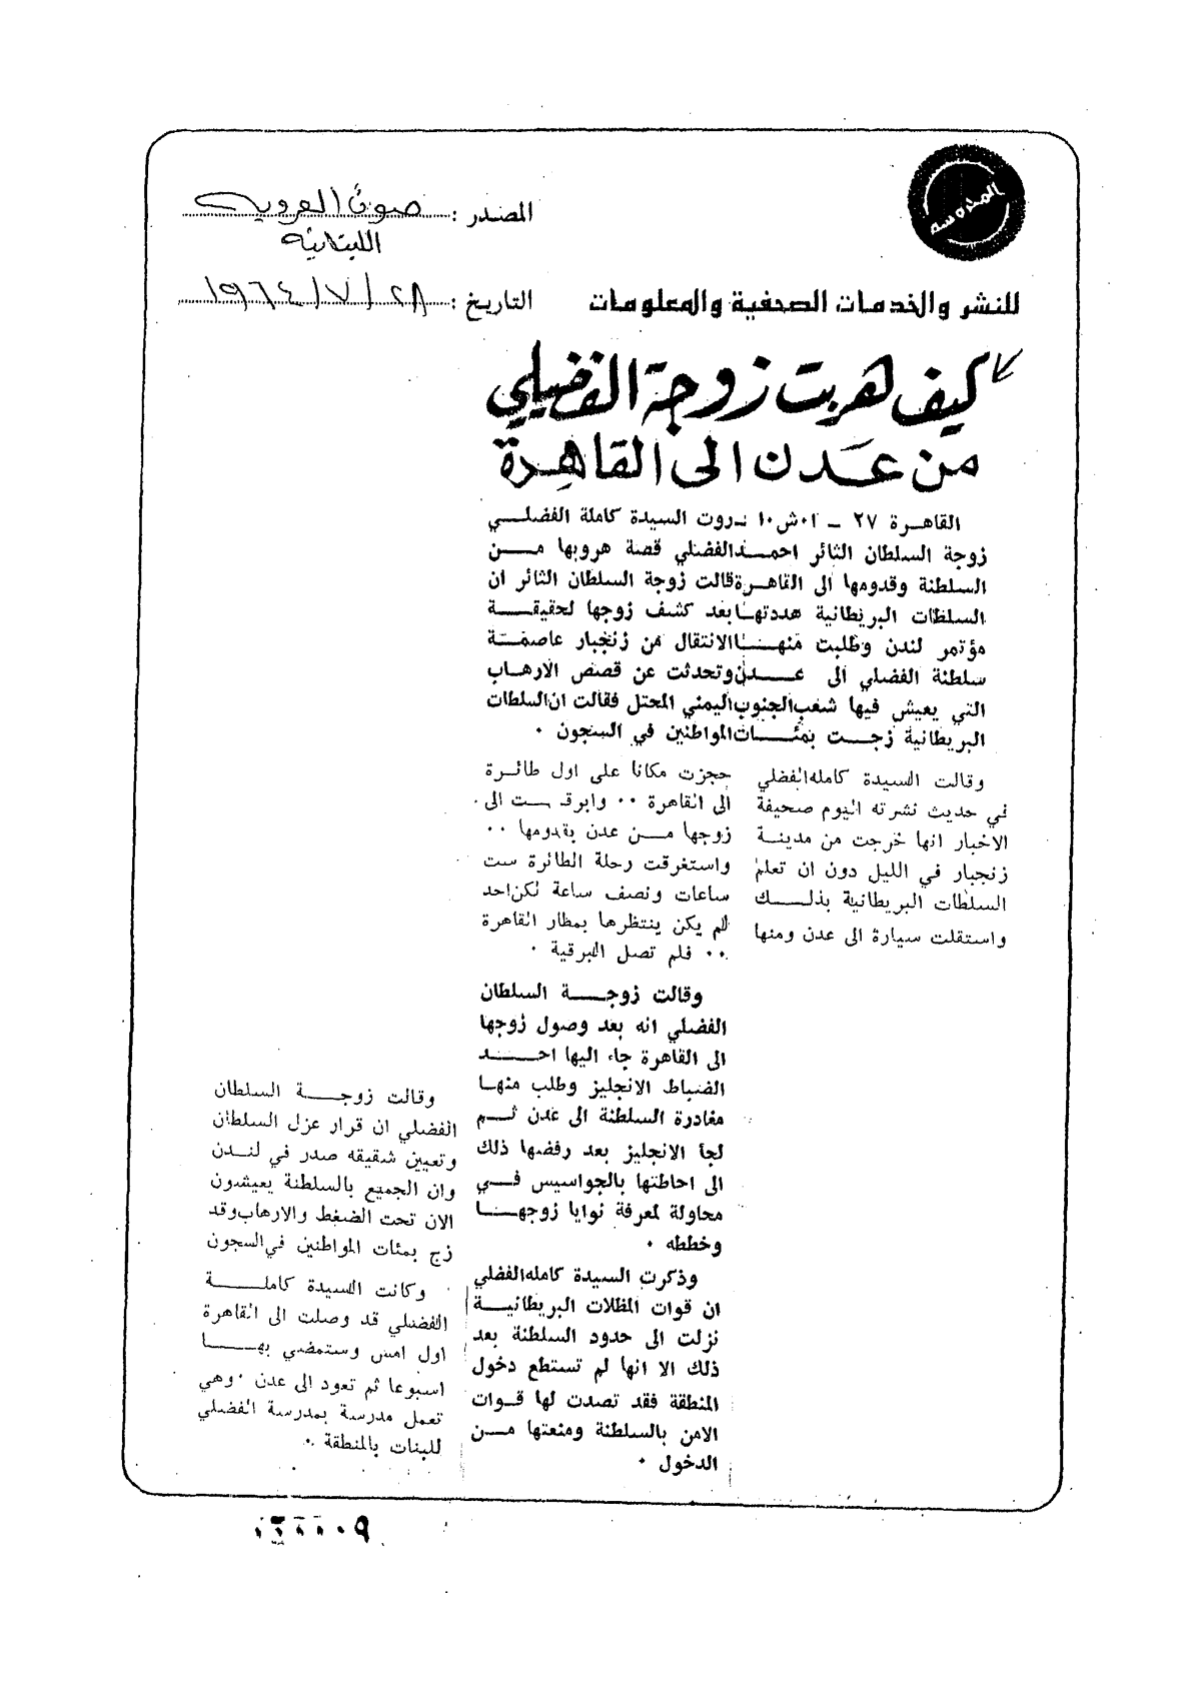 المدرسه
المصدر : صوت العروبه
اللبنانيه
للنشر والخدمات الصحفية والمعلومات
التاريخ : ٢٨ / ٧ / ١٩٦٤
كيف هربت زوجة الفضلي
من عدن الى القاهرة
القاهرة ٢٧ - ا٠ش٠ا - روت السيدة كاملة الفضلي
زوجة السلطان الثائر احمد الفضلي قصة هروبها من
السلطنة وقدومها الى القاهرة قالت زوجة السلطان الثائر ان
السلطات البريطانية هددتها بعد كشف زوجها لحقيقة
مؤتمر لندن وطلبت منها الانتقال من زنجبار عاصمة
سلطنة الفضلي الى عدن وتحدثت عن قصص الارهاب
التي يعيش فيها شعب الجنوب اليمني المحتل فقالت ان السلطات
البريطانية زجت بمئات المواطنين في السجون ٠
وقالت السيدة كامله الفضلي
في حديث نشرته اليوم صحيفة
الاخبار انها خرجت من مدينة
زنجبار في الليل دون ان تعلم
السلطات البريطانية بذلك
واستقلت سيارة الى عدن ومنها
حجزت مكانا على اول طائرة
الى القاهرة ٠٠ وابرقت الى
زوجها من عدن بقدومها ٠٠
واستغرقت رحلة الطائرة ست
ساعات ونصف ساعة لكن احد
لم يكن ينتظرها بمطار القاهرة
٠٠ فلم تصل البرقية ٠
وقالت زوجة السلطان
الفضلي انه بعد وصول زوجها
الى القاهرة جاء اليها احد
الضباط الانجليز وطلب منها
مغادرة السلطنة الى عدن ثم
لجأ الانجليز بعد رفضها ذلك
الى احاطتها بالجواسيس في
محاولة لمعرفة نوايا زوجها
وخططه ٠
وذكرت السيدة كامله الفضلي
ان قوات المظلات البريطانية
نزلت الى حدود السلطنة بعد
ذلك الا انها لم تستطع دخول
المنطقة فقد تصدت لها قوات
الامن بالسلطنة ومنعتها من
الدخول ٠
وقالت زوجة السلطان
الفضلي ان قرار عزل السلطان
وتعيين شقيقه صدر في لندن
وان الجميع بالسلطنة يعيشون
الان تحت الضغط والارهاب وقد
زج بمئات المواطنين في السجون
وكانت السيدة كاملة
الفضلي قد وصلت الى القاهرة
اول امس وستمضي بها
اسبوعا ثم تعود الى عدن ٠ وهي
تعمل مدرسة بمدرسة الفضلي
للبنات بالمنطقة ٠